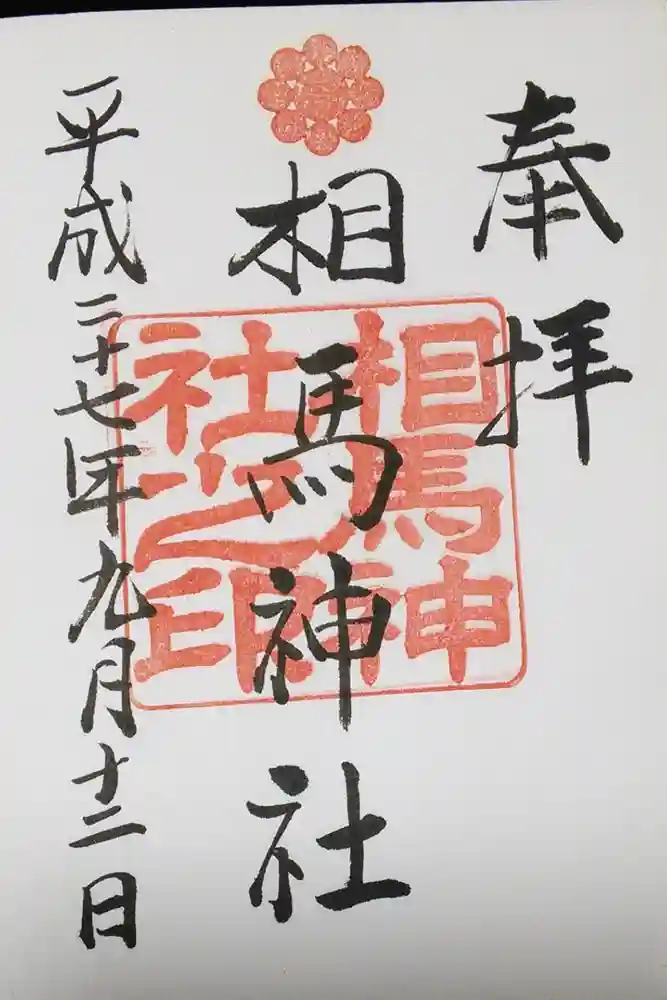 奉拝
相馬神社
相馬神
社之印
平成二十七年九月十二日